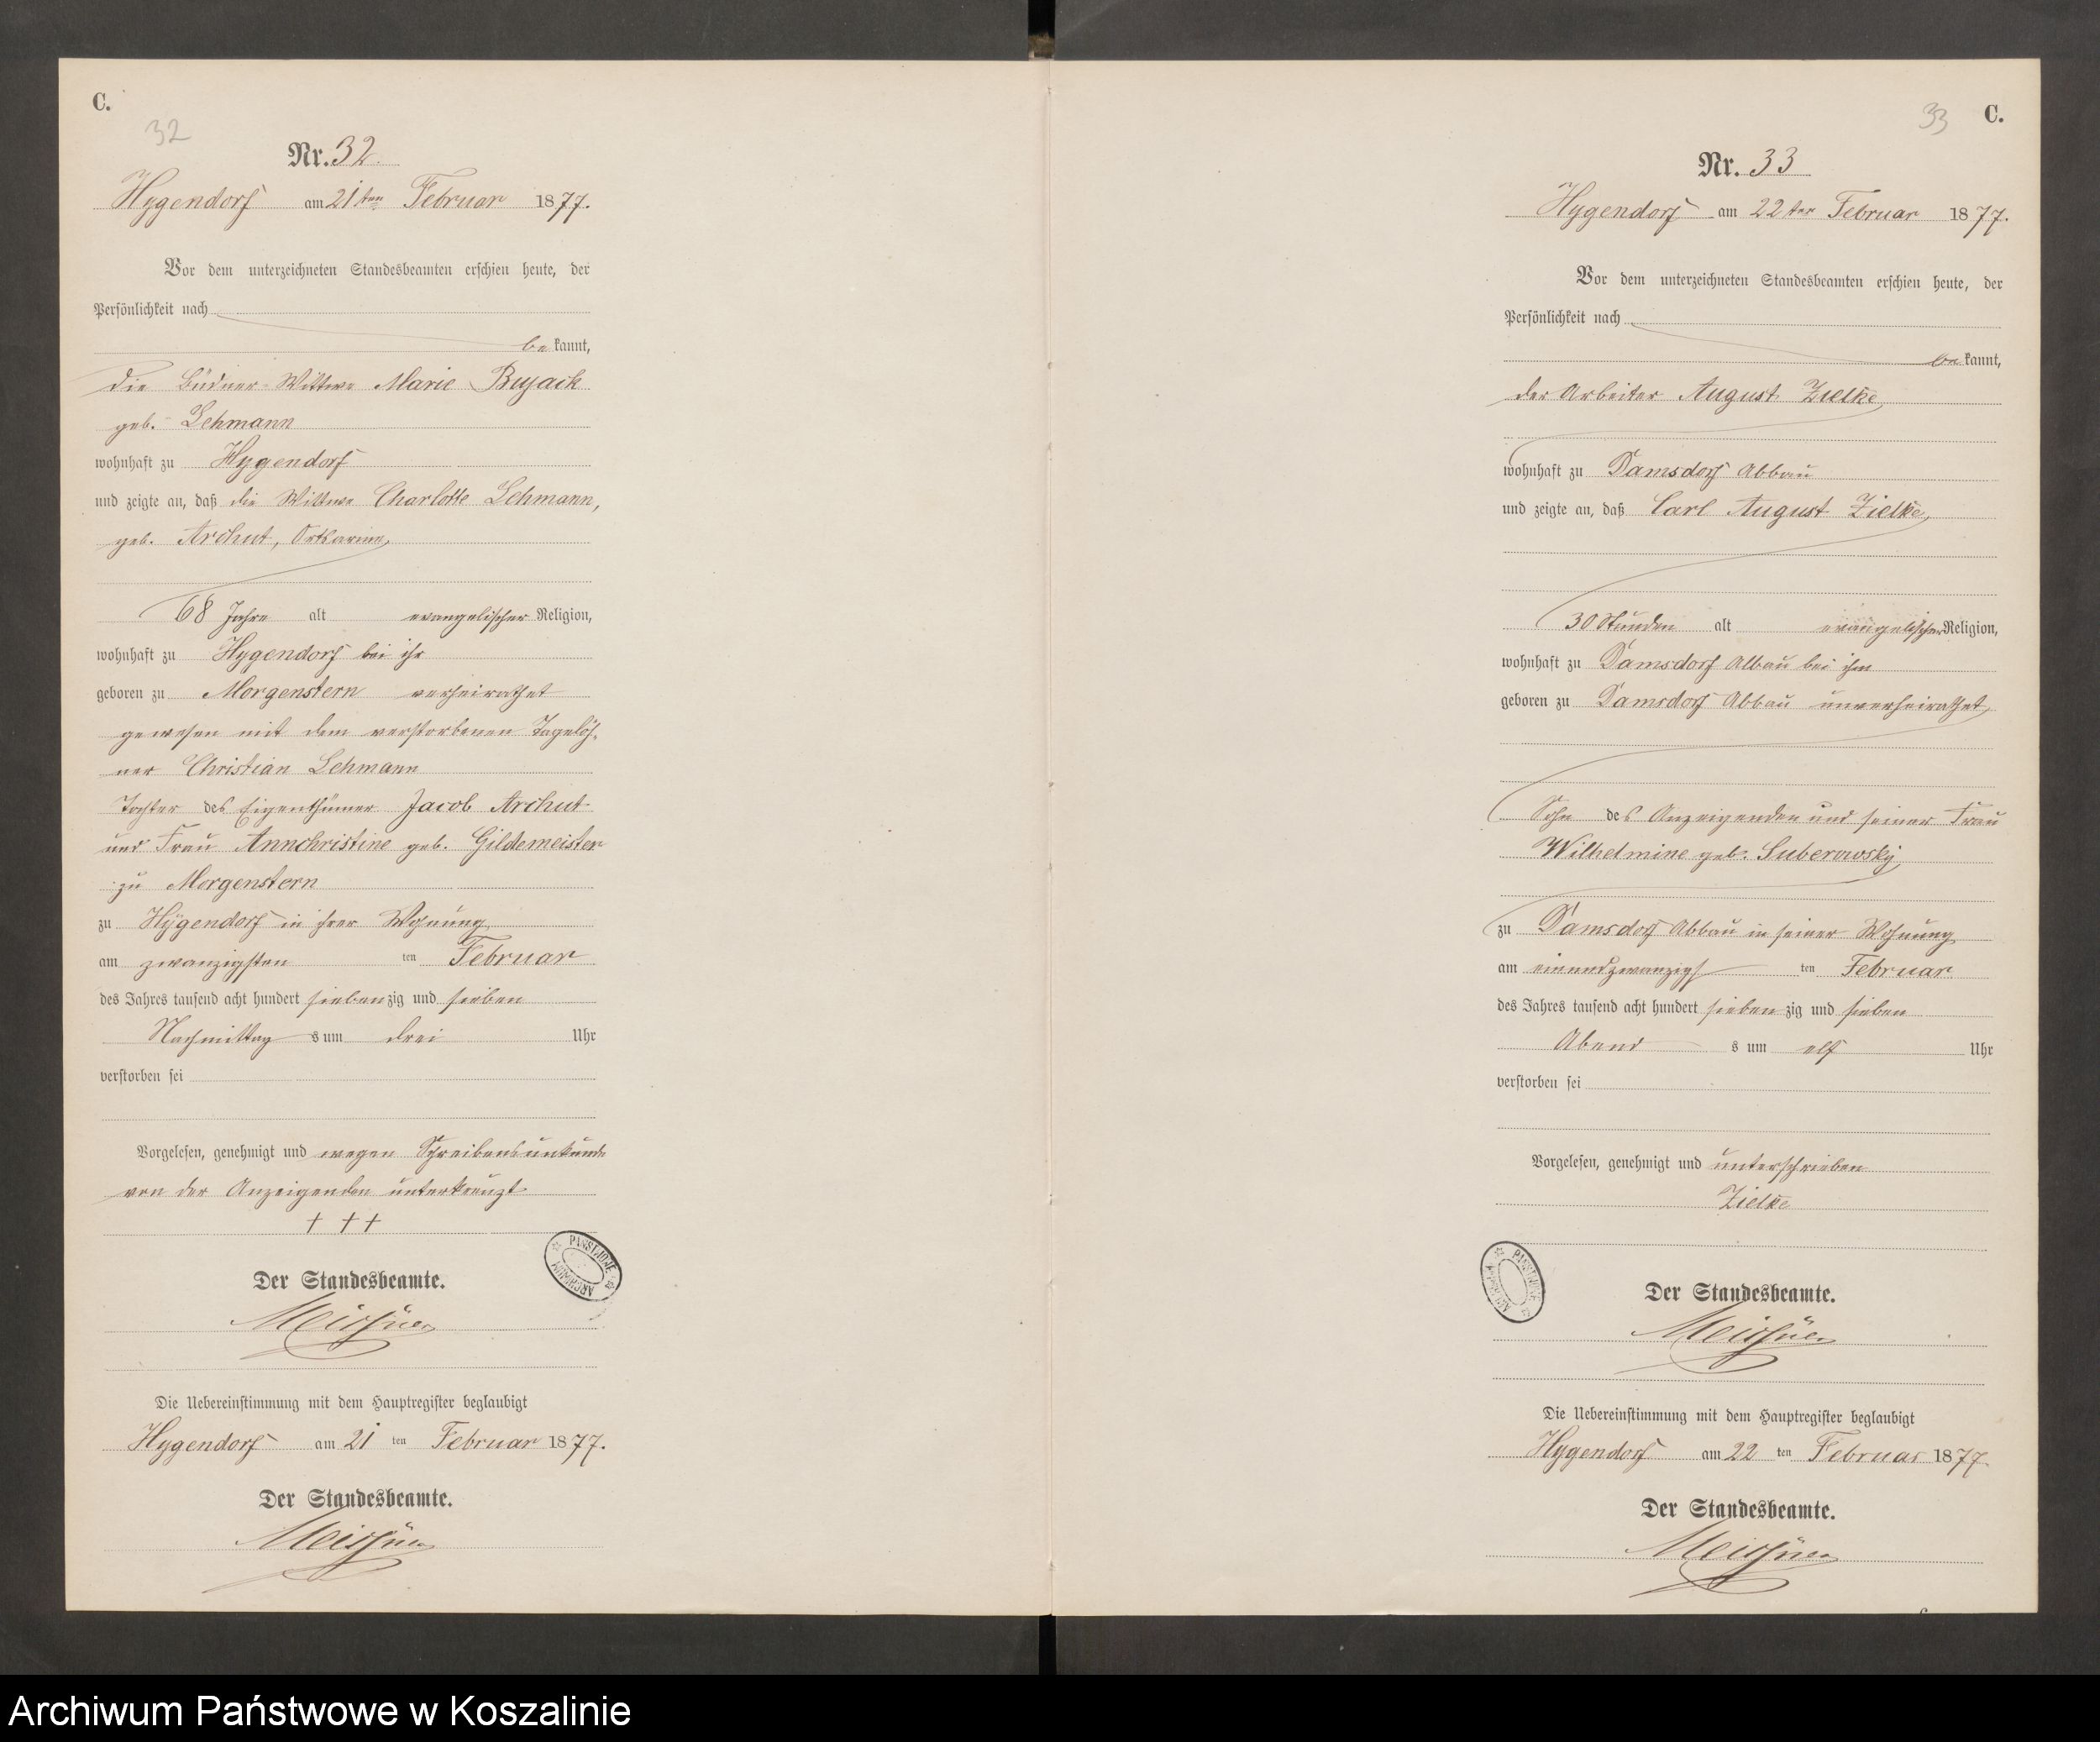 C.
32
Nr. 32.
Hygendorf am 21ten Februar 1877.
Vor dem unterzeichneten Standesbeamten erschien heute, der
Persönlichkeit nach
bekannt,
die Büdner-Wittwe Marie Bujack
geb. Lehmann
wohnhaft zu Hygendorf
und zeigte an, daß die Wittwe Charlotte Lehmann,
geb. Archut, Ortsarme,
68 Jahre alt evangelischer Religion,
wohnhaft zu Hygendorf bei ihr
geboren zu Morgenstern verheirathet
gewesen mit dem verstorbenen Tagelöh-
ner Christian Lehmann
Tochter des Eigenthümer Jacob Archut
und Frau Annchristine geb. Gildemeister
zu Morgenstern
zu Hygendorf in ihrer Wohnung
am zwanzigsten ten Februar
des Jahres tausend acht hundert siebenzig und sieben
Nachmittag s um drei Uhr
verstorben sei
Vorgelesen, genehmigt und wegen Schreibensunkunde
von der Anzeigenden unterkreuzt
† † †
PAŃSTWOWE ARCHIWUM
Der Standesbeamte.
Die Uebereinstimmung mit dem Hauptregister beglaubigt
Hygendorf am 21 ten Februar 1877.
Der Standesbeamte.
33
C.
Nr. 33
Hygendorf am 22ten Februar 1877.
Vor dem unterzeichneten Standesbeamten erschien heute, der
Persönlichkeit nach
bekannt,
der Arbeiter August Zielke
wohnhaft zu Damsdorf Abbau
und zeigte an, daß Carl August Zielke,
30 Stunden alt evangelischer Religion,
wohnhaft zu Damsdorf Abbau bei ihm
geboren zu Damsdorf Abbau unverheirathet,
Sohn des Anzeigenden und seiner Frau
Wilhelmine geb. Suberowsky
zu Damsdorf Abbau in seiner Wohnung
am einundzwanzigs ten Februar
des Jahres tausend acht hundert siebenzig und sieben
Abend s um elf Uhr
verstorben sei
Vorgelesen, genehmigt und unterschrieben
Zielke
PAŃSTWOWE ARCHIWUM
Der Standesbeamte.
Die Uebereinstimmung mit dem Hauptregister beglaubigt
Hygendorf am 22 ten Februar 1877
Der Standesbeamte.
Archiwum Państwowe w Koszalinie